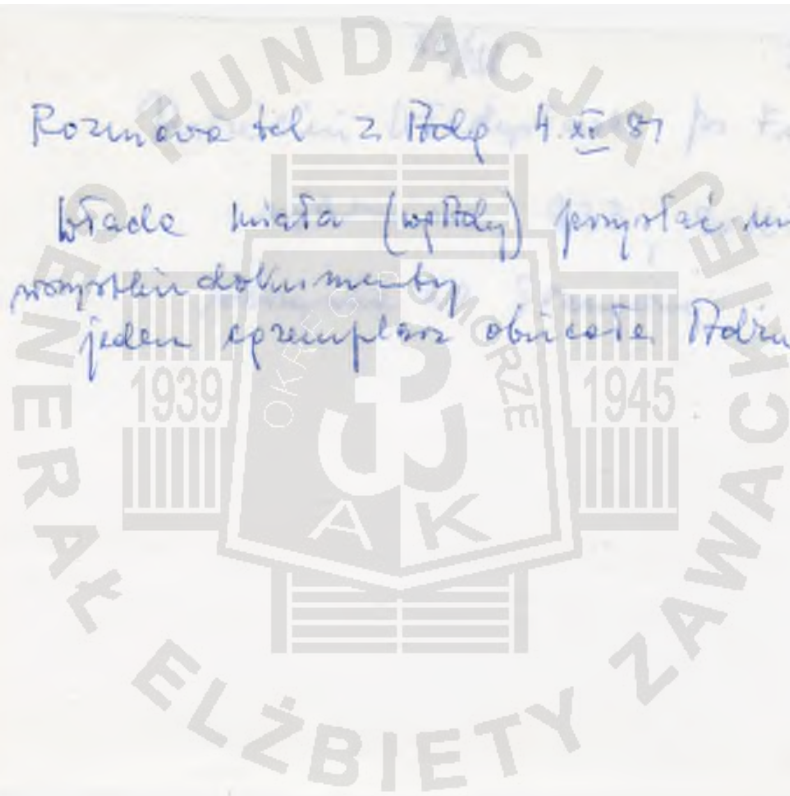 Rozmowa tel z 4 XI 81
Władcie miała przysłać mi
wszystkie dokumenty
jeden egzemplarz obiecała
FUNDACJA GENERAŁ ELŻBIETY ZAWACKIEJ
OKRĘG POMORZE
1939
1945
AK